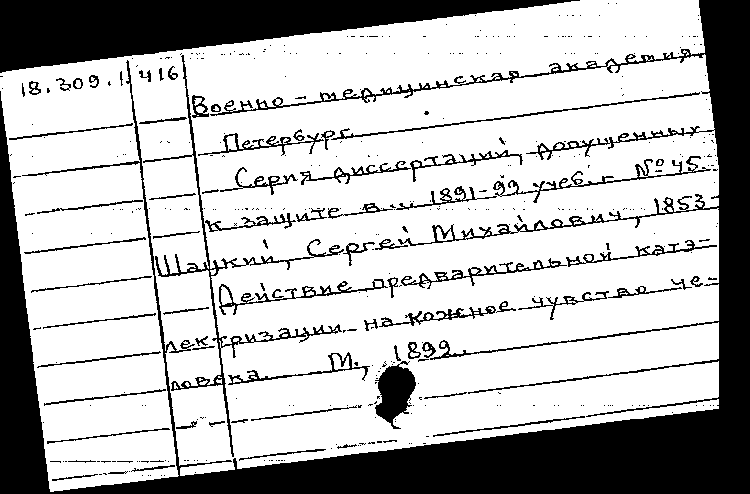 18.309.1.416
Военно-медицинская академия.
Петербург.
Серия диссертаций, допущенных
к защите в... 1891-99 учеб. г. № 45.
Шацкий, Сергей Михайлович, 1853-
Действие предварительной катэ-
лектризации на кожное чувство че-
ловека. М., 1899.